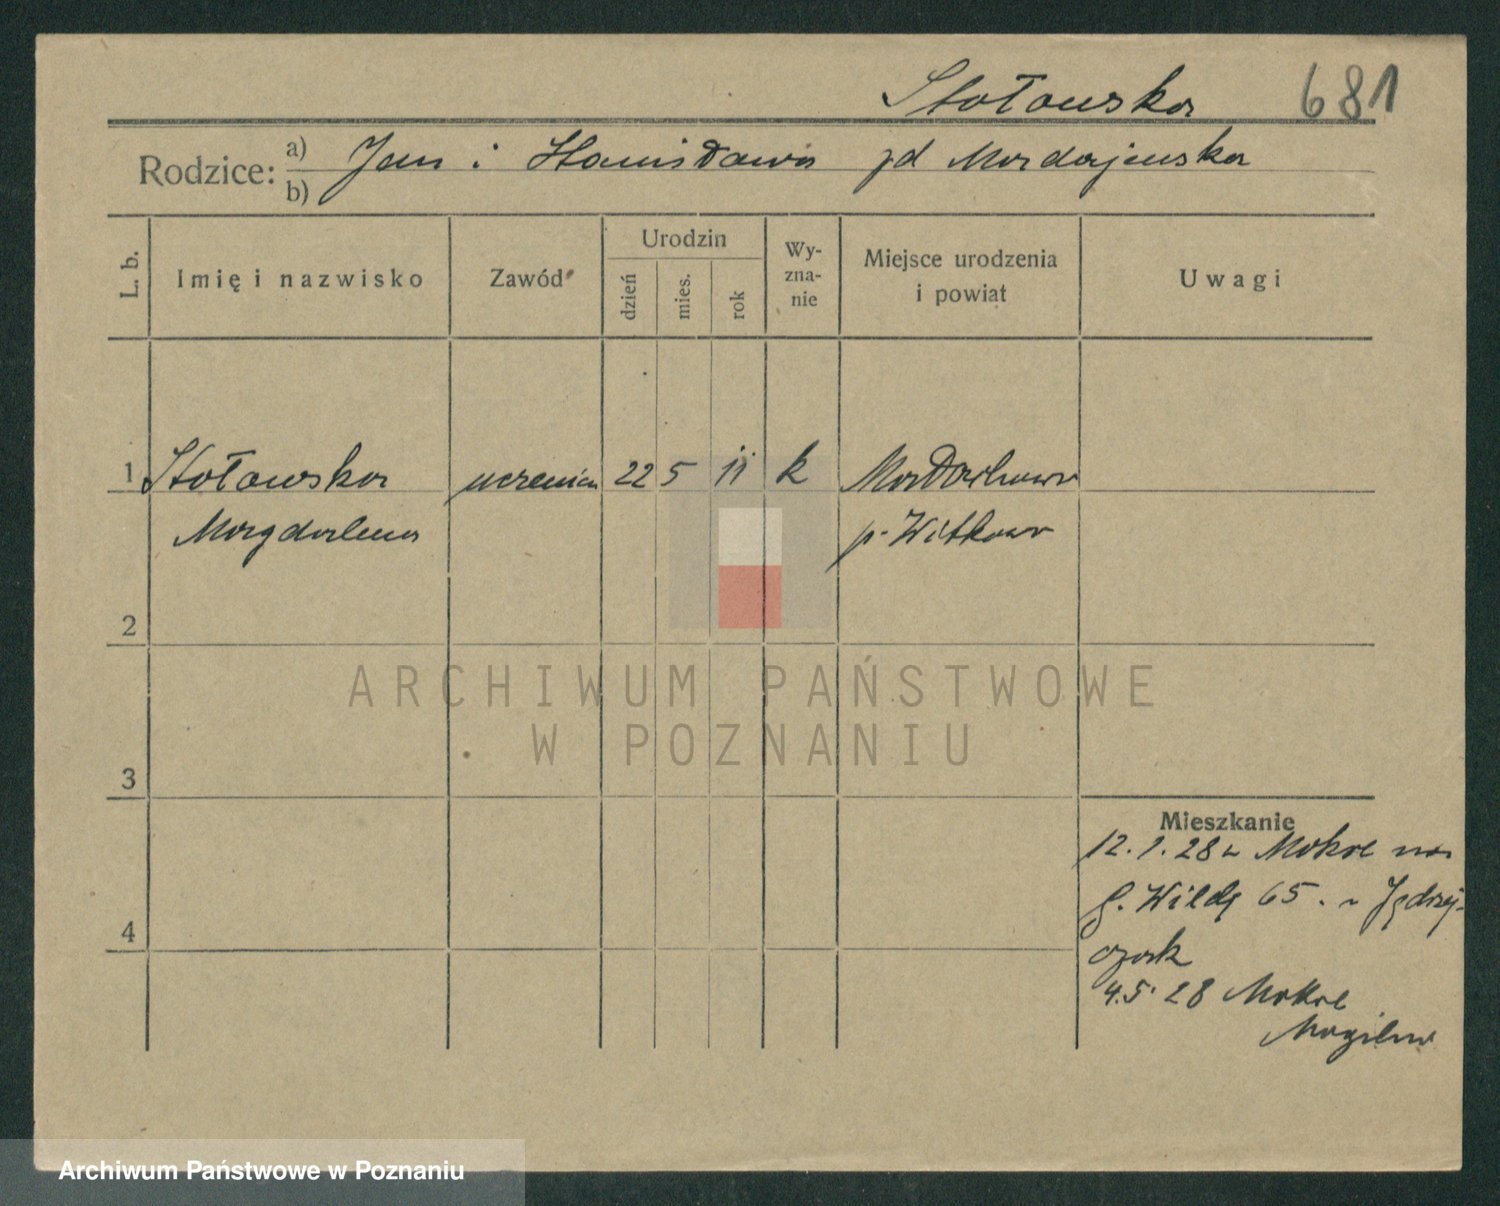 Stołowska 681
Rodzice: a) b) Jan i Stanisława zd Mordajewska
L. b.
Imię i nazwisko
Zawód
Urodzin
dzień
mies.
rok
Wy-
zna-
nie
Miejsce urodzenia
i powiat
Uwagi
1 Stołowska uczenica 22 5 11 k
Magdalena p. Witkowo
2
3
4
Mieszkanie
12.1.28 z Mokre na
G. Wildę 65. Jędrzej-
czak
4.5 28 Mokre
Mogilno
ARCHIWUM PAŃSTWOWE
W POZNANIU
Archiwum Państwowe w Poznaniu